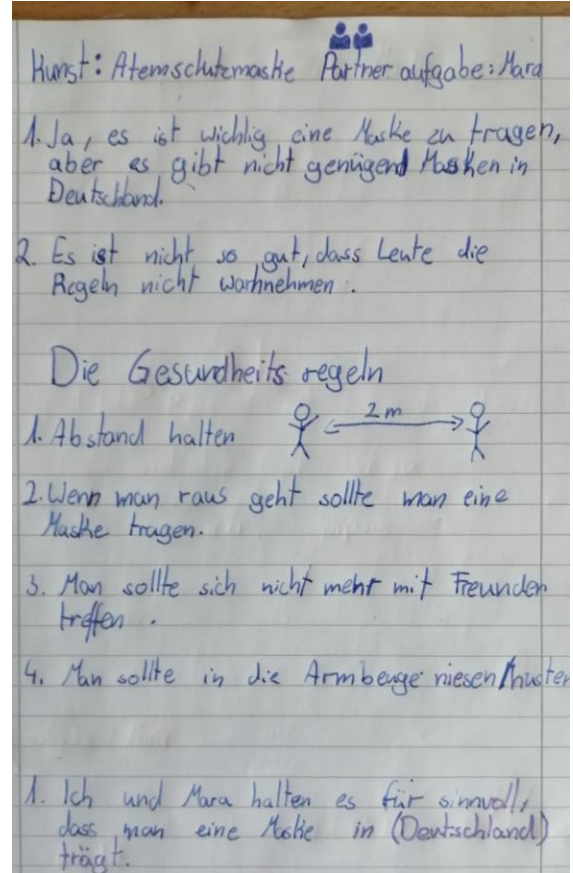 Kunst: Atemschutzmaske Partneraufgabe: Mara
1. Ja, es ist wichtig eine Maske zu tragen,
aber es gibt nicht genügend Masken in
Deutschland.
2. Es ist nicht so gut, dass Leute die
Regeln nicht warhnehmen.
Die Gesundheits regeln
1. Abstand halten
2 m
2. Wenn man raus geht sollte man eine
Maske tragen.
3. Man sollte sich nicht mehr mit Freunden
treffen.
4. Man sollte in die Armbeuge niesen/husten
1. Ich und Mara halten es für sinnvoll,
dass man eine Maske in (Deutschland)
trägt.